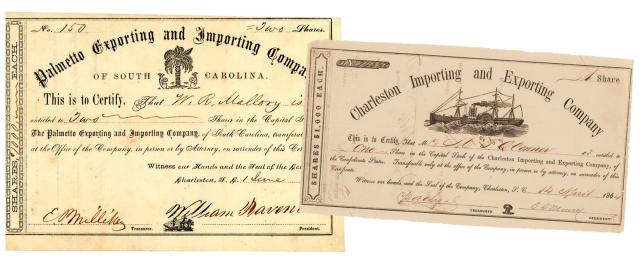 No. 150 Two Shares.
Palmetto Exporting and Importing Compa
OF SOUTH CAROLINA.
This is to Certify, That W. R. Mallory is
entitled to Two Shares in the Capital S
The Palmetto Exporting and Importing Company, of South Carolina, transfera
at the Office of the Company, in person or by Attorney, on surrender of this Cer
Witness our Hands and the Seal of the
Charleston, 1 June
William Raven
Treasurer. President.
SHARES, EACH.
1 Share
Charleston Importing and Exporting Company
This is to Certify, That M entitled to
One Share in the Capital Stock of the Charleston Importing and Exporting Company, of
the Confederate States. Transferable only at the office of the Company, in person or by attorney, on surrender of this
Certificate.
Witness our hands and the Seal of the Company, Charleston, S. C. 14 April 1864
TREASURER PRESIDENT.
SHARES $1,000 EACH.